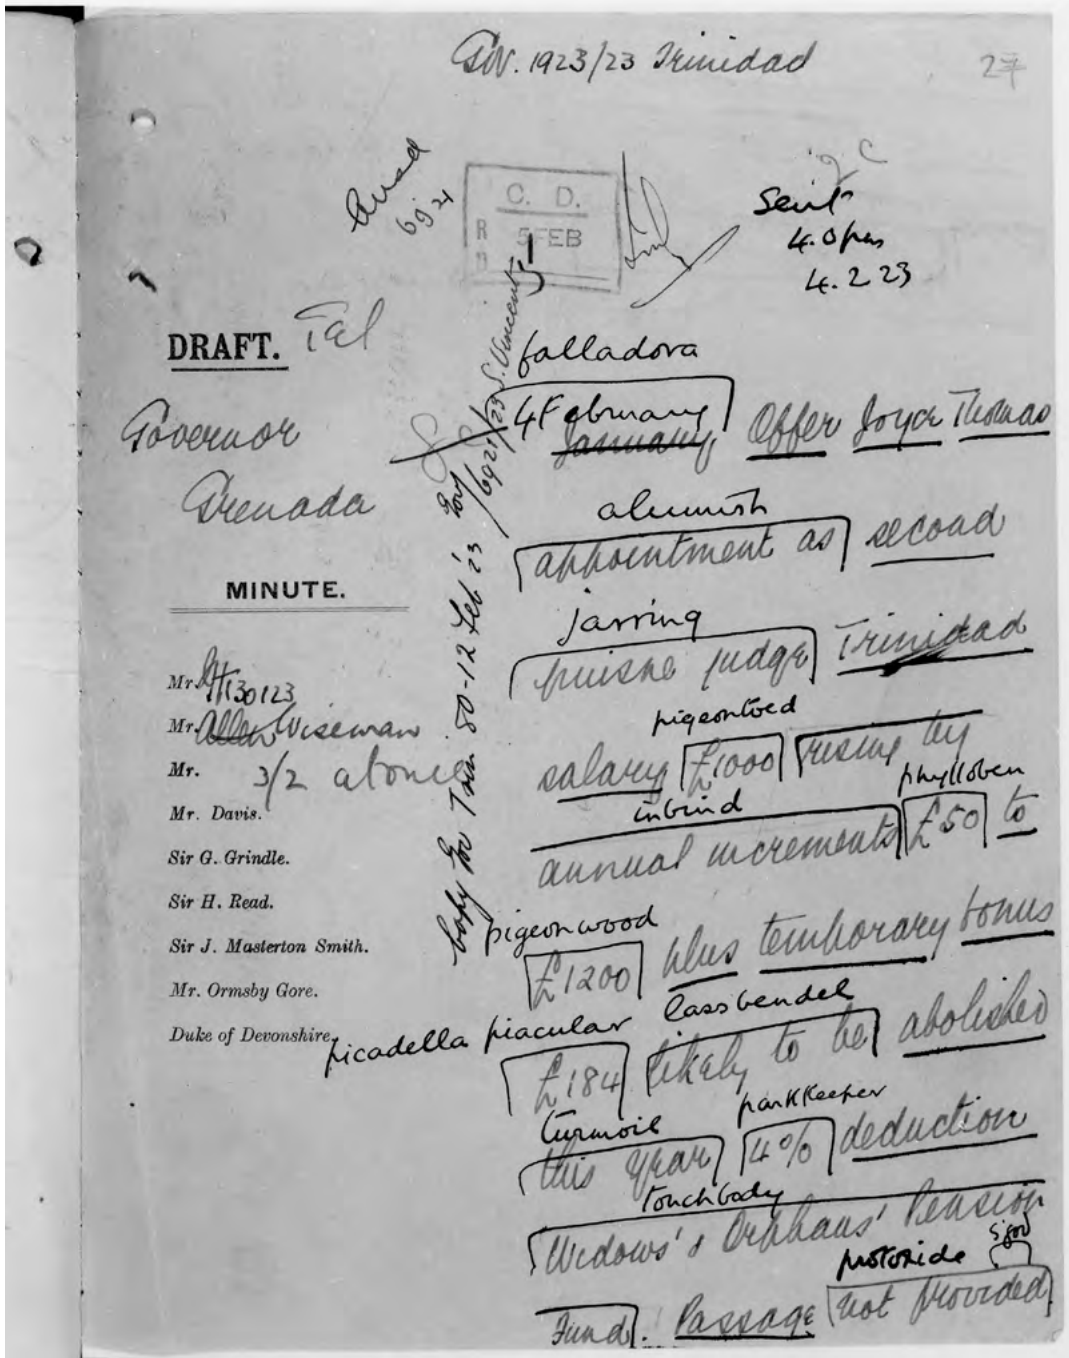 Gov. 1923/23 Trinidad
27
2c
6921
C. D.
R 5 FEB
Sent
4.0 pm
4.2.23
DRAFT. Tel
Governor
Grenada
MINUTE.
Mr. 30123
Mr. Allen Wiseman
Mr. 3/2 at once
Mr. Davis.
Sir G. Grindle.
Sir H. Read.
Sir J. Masterton Smith.
Mr. Ormsby Gore.
Duke of Devonshire.
Copy Gov Trin 80-12 Feb '23
Gov 6921/23 S. Vincent
falladora
4 February
January Offer Joyce Thomas
alumish
appointment as second
jarring
puisne judge Trinidad
pigeontoed
salary £1000 rising by
inbind phylloben
annual increments £50 to
pigeonwood
£1200 plus temporary bonus
picadella piacular lassbendel
£184 likely to be abolished
turmoil parkkeeper
this year 4% deduction
touchbody
Widows' & Orphans' Pension
protoxide
Fund. Passage not provided